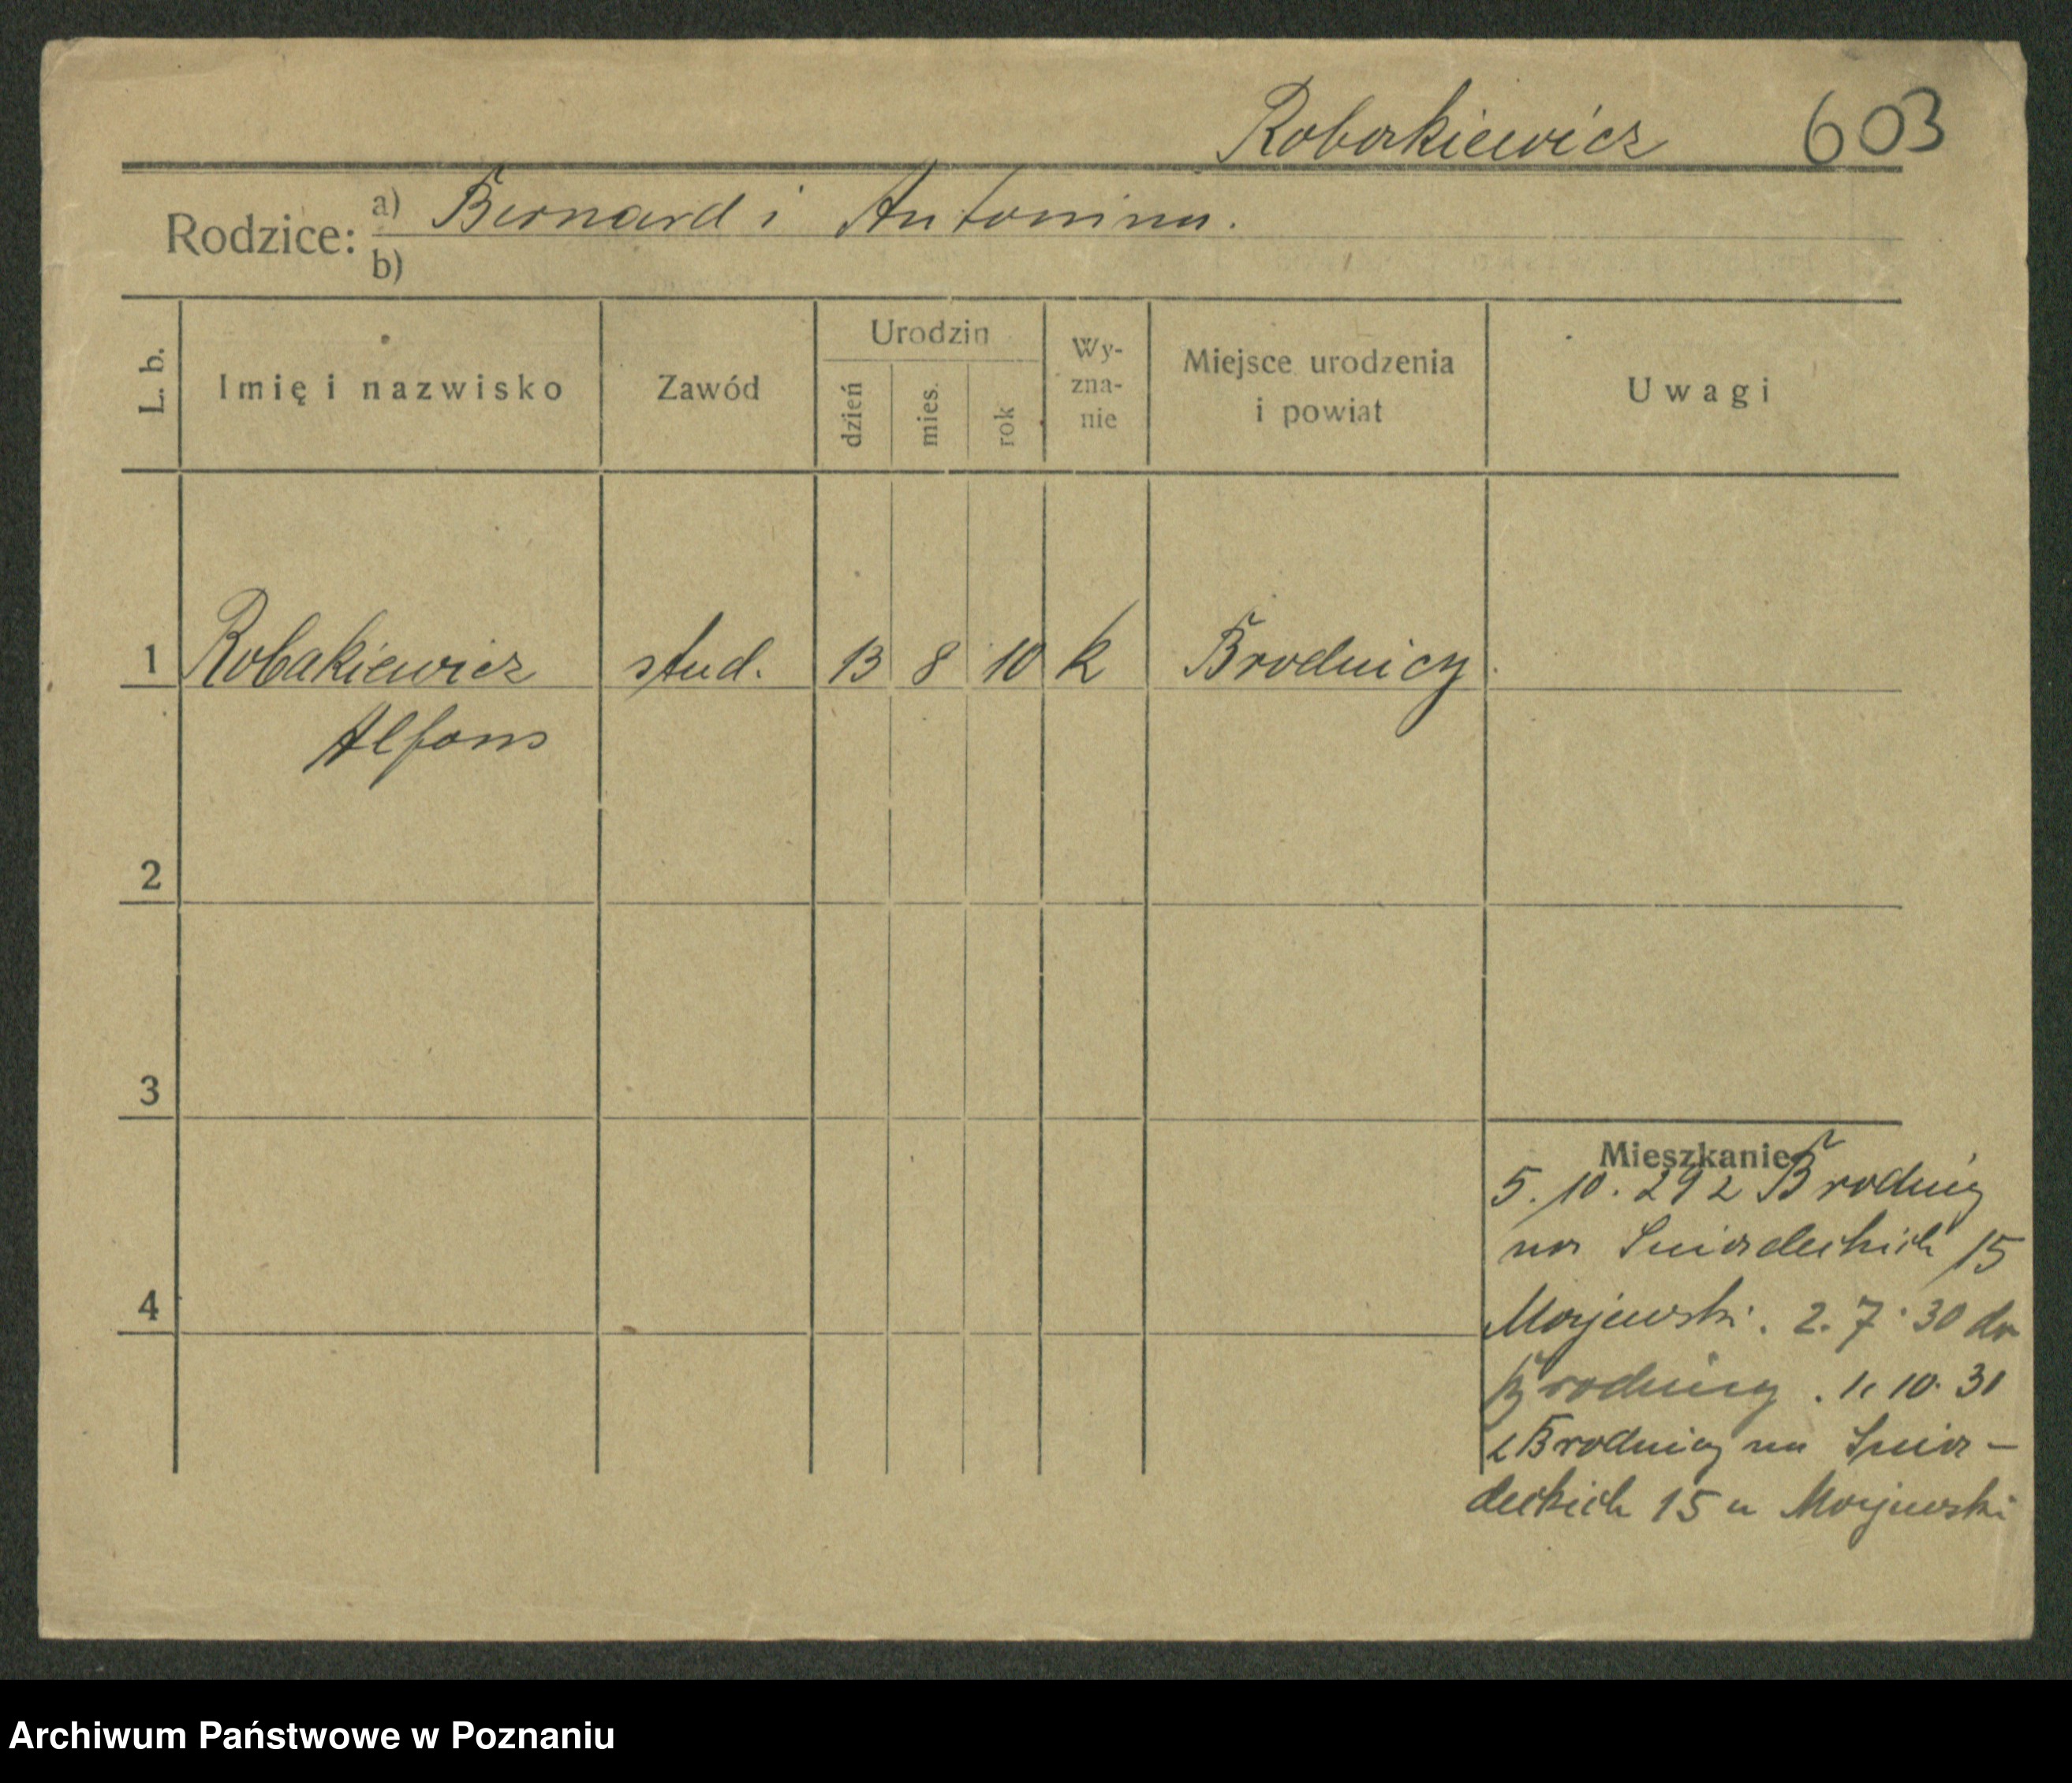 Robakiewicz 603
Rodzice: a) Bernard i Antonina.
b)
L. b. Imię i nazwisko Zawód Urodzin dzień mies. rok Wy-zna-nie Miejsce urodzenia i powiat Uwagi
1 Robakiewicz stud. 13 8 10 k Brodnicy
Alfons
2
3
4
Mieszkanie
5. 10. 29 z Brodnicy
na Śniadeckich 15
Majewski. 2. 7. 30 do
Brodnicy. 1. 10. 31
z Brodnicy na Śnia-
deckich 15 u Majewski
Archiwum Państwowe w Poznaniu